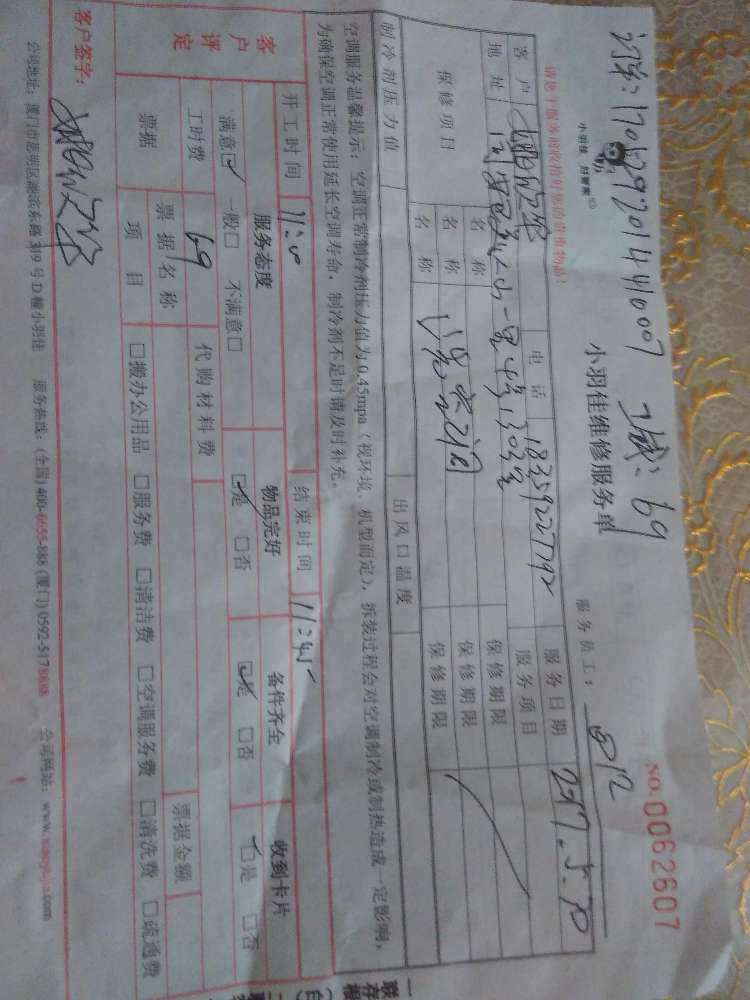 订单:170529201441007 工城: 69
小羽佳 好管家
NO. 0062607
小羽佳维修服务单
服务员工: 8012
请您于服务前收拾好您的贵重物品!
客户 电话 18359225792 服务日期 2017.5.30
地址 1303室 服务项目
保修项目 名称 保修期限
名称 保修期限
名称 保修期限
制冷剂压力值 出风口温度
空调服务温馨提示:空调正常制冷剂压力值为0.45mpa(视环境、机型而定),拆装过程会对空调制冷或制热造成一定影响,
为确保空调正常使用延长空调寿命,制冷剂不足时请及时补充。
开工时间 11:00 结束时间 11:45
客户评定 服务态度 物品完好 备件齐全 收到卡片
满意☑ 一般□ 不满意□ ☑是 □否 ☑是 □否 ☑是 □否
工时费 69 代购材料费
票据 票据名称 票据金额
项目 □搬办公用品 □服务费 □清洁费 □空调服务费 □清洗费 □疏通费
客户签字:
公司地址:厦门市思明区湖滨东路319号D幢小羽佳 服务热线:(全国)400-6655-888 (厦门)0592-5178888 公司网站: